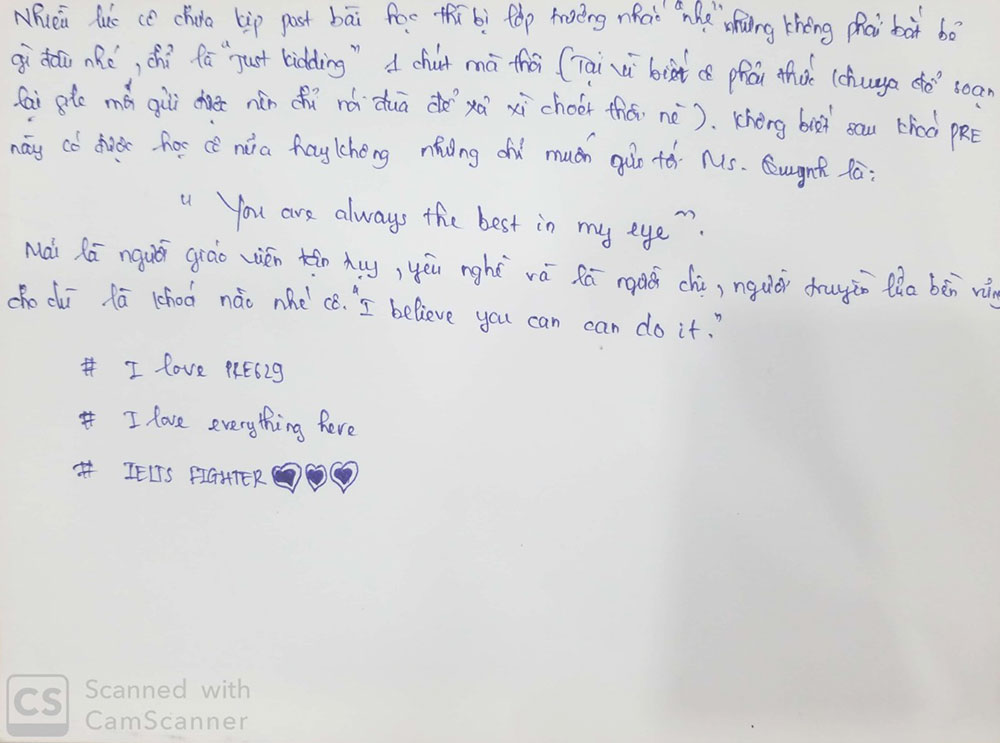 Nhiều lúc cô chưa kịp post bài học thì bị lớp trưởng nhắc "nhẹ" nhưng không phải bắt bẻ
gì đâu nhé, chỉ là "Just kidding" 1 chút mà thôi (Tại vì biết cô phải thức khuya để soạn
lại file mới gửi được nên chỉ nói đùa để xả xì choét thôi nè). Không biết sau khoá PRE
này có được học cô nữa hay không nhưng chỉ muốn gửi tới Ms. Quỳnh là:
" You are always the best in my eye ".
Mãi là người giáo viên tận tuỵ, yêu nghề và là người chị, người truyền lửa bền vững
cho dù là khoá nào nhé cô. "I believe you can can do it."
# I love PRE629
# I love everything here
# IELTS FIGHTER
CS Scanned with
CamScanner